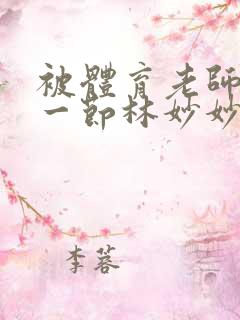 被體育老師
一節林妙妙
李蓉